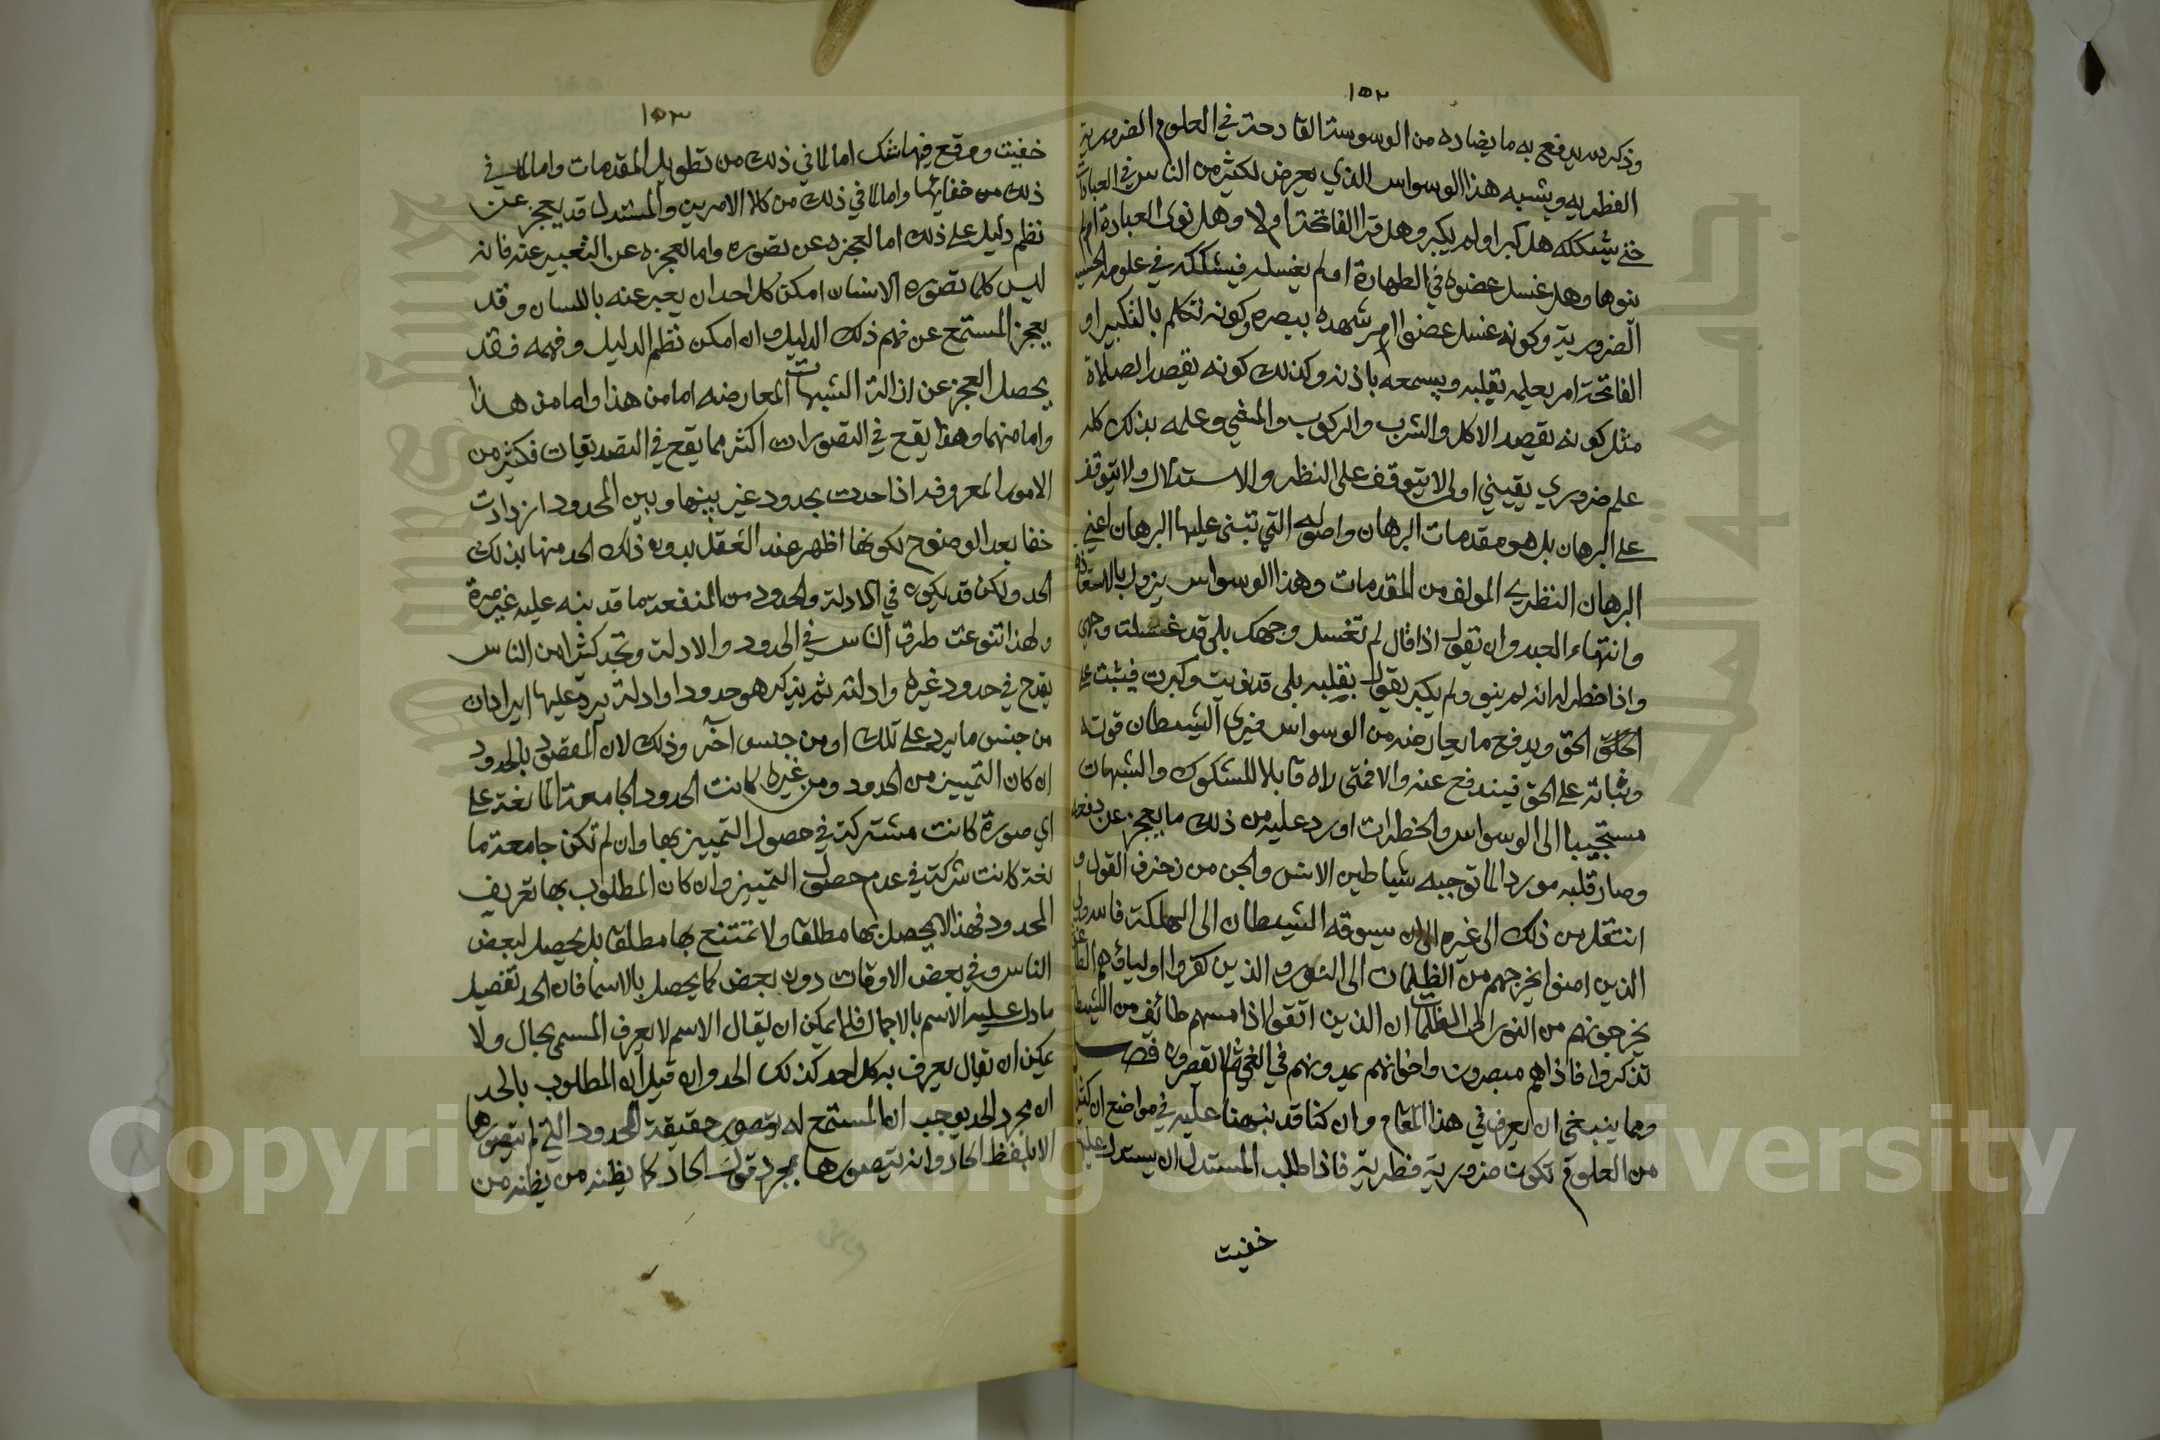 ١٥٢
وذكره يدفع به ما يضاده من الوسوسة القادحة في العلوم الضرورية
الفطريه ويشبه هذا الوسواس الذي يعرض لكثير من الناس في العبادات
حتى يشككه هل كبر او لم يكبر وهل قرا الفاتحة ام لا وهل نوى العبادة ام لم
ينوها وهل غسل عضوه في الطهارة او لم يغسله فيشككه في علومه الحسية
الضرورية وكونه غسل عضوا امر شهده ببصره وكونه تكلم بالتكبير او
الفاتحة امر يعلمه بقلبه ويسمعه باذنه وكذلك كونه يقصد الصلاة
مثل كونه يقصد الاكل والشرب والركوب والمشي وعلمه بذلك كله
علم ضروري يقيني اولي لا يتوقف على النظر والاستدلال ولا يتوقف
على البرهان بل هو مقدمات البرهان واصوله التي تبنى عليها البرهان اعني
البرهان النظري المولف من المقدمات وهذا الوسواس يزول بالاستعاذة
وانتهاء العبد وان يقول اذا قال لم تغسل وجهك بلى قد غسلت وجهي
واذا خطر له انه لم ينو ولم يكبر يقول بقلبه بلى قد نويت وكبرت فيثبت على
الحق ويدفع ما يعارضه من الوسواس فيرى الشيطان قوته
وثباته على الحق فيندفع عنه والا فمتى راه قابلا للشكوك والشبهات
مستجيبا الى الوسواس والخطرات اورد عليه من ذلك ما يعجز عن دفعه
وصار قلبه موردا لما توحيه شياطين الانس والجن من زخرف القول و
انتقل من ذلك الى غيره الى ان يسوقه الشيطان الى الهلكة فالله ولي
الذين امنوا يخرجهم من الظلمات الى النور والذين كفروا اولياؤهم الطاغوت
يخرجونهم من النور الى الظلمات ان الذين اتقوا اذا مسهم طائف من الشيطان
تذكروا فاذا هم مبصرون واخوانهم يمدونهم في الغي ثم لا يقصرون فصل
ومما ينبغي ان يعرف في هذا المقام وان كنا قد نبهنا عليه في مواضع ان كثيرا
من العلوم تكون ضرورية فطرية فاذا طلب المستدل ان يستدل عليها
خفيت
١٥٣
خفيت ووقع فيها شك اما لما في ذلك من تطويل المقدمات واما لما في
ذلك من خفائها واما لما في ذلك من كلا الامرين والمستدل قد يعجز عن
نظم دليل على ذلك اما لعجزه عن تصوره واما لعجزه عن التعبير عنه فانه
ليس كلما تصوره الانسان امكن كل احد ان يعبر عنه باللسان وقد
يعجز المستمع عن فهم ذلك الدليل وان امكن نظم الدليل وفهمه فقد
يحصل العجز عن ازالة الشبهات المعارضه اما من هذا واما من هذا
واما منهما وهذا يقع في التصورات اكثر مما يقع في التصديقات فكثير من
الامور المعروفه اذا حدت بحدود غير بينها وبين المحدود ازدادت
خفا بعد الوضوح لكونها اظهر عند العقل بدون ذلك الحد منها بذلك
الحد ولكن قد يكون في الادلة والحدود من المنفعه ما قد نبه عليه غير مرة
ولهذا تنوعت طرق الناس في الحدود والادلة وتجد كثيرا من الناس
يقدح في حدود غيره وادلته ثم يذكر هو حدودا وادلة يرد عليها ايرادات
من جنس ما يرد على تلك او من جنس آخر وذلك لان المقصود بالحدود
ان كان التمييز من الحدود ومن غيره كانت الحدود الجامعة المانعة على
اي صورة كانت مشتركة في حصول التمييز بها وان لم تكن جامعة ما
نعة كانت شركة في عدم حصول التمييز وان كان المطلوب بها تعريف
المحدود فهذا لا يحصل بها مطلقا ولا تمتنع بها مطلقا بل يحصل لبعض
الناس وفي بعض الاوقات دون بعض كما يحصل بالاسما فان الحد تفصيل
ما دل عليه الاسم بالاجمال فلا يمكن ان يقال الاسم لا يعرف المسمى بحال ولا
يمكن ان يقال يعرف به كل احد كذلك الحد وان قيل ان المطلوب بالحد
ان مجرد الحد يوجب ان المستمع له يتصور حقيقة المحدود التي لم يتصورها
الا بلفظ الحاد وانه يتصورها بمجرد قول الحاد كما يظنه من يظنه من